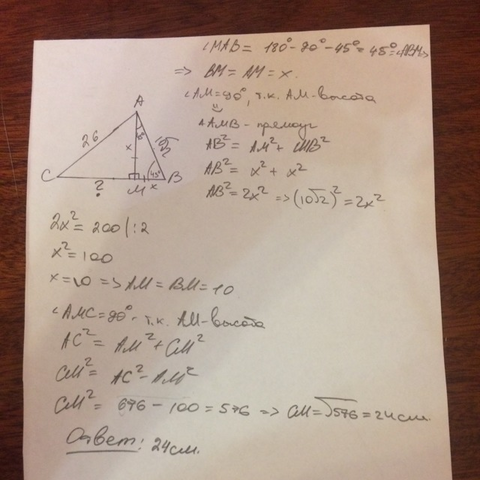 ∠MAB = 180° - 90° - 45° = 45° = ∠ABM =>
=> BM = AM = x.
∠AM = 90°, т.к. AM - высота
△AMB - прямоуг
AB² = AM² + MB²
AB² = x² + x²
AB² = 2x² => (10√2)² = 2x²
A
26
x
10√2
45°
C
?
M
x
B
2x² = 200 |:2
x² = 100
x = 10 => AM = BM = 10
∠AMC = 90° - т.к. AM - высота
AC² = AM² + CM²
CM² = AC² - AM²
CM² = 676 - 100 = 576 => CM = √576 = 24 см.
Ответ: 24 см.